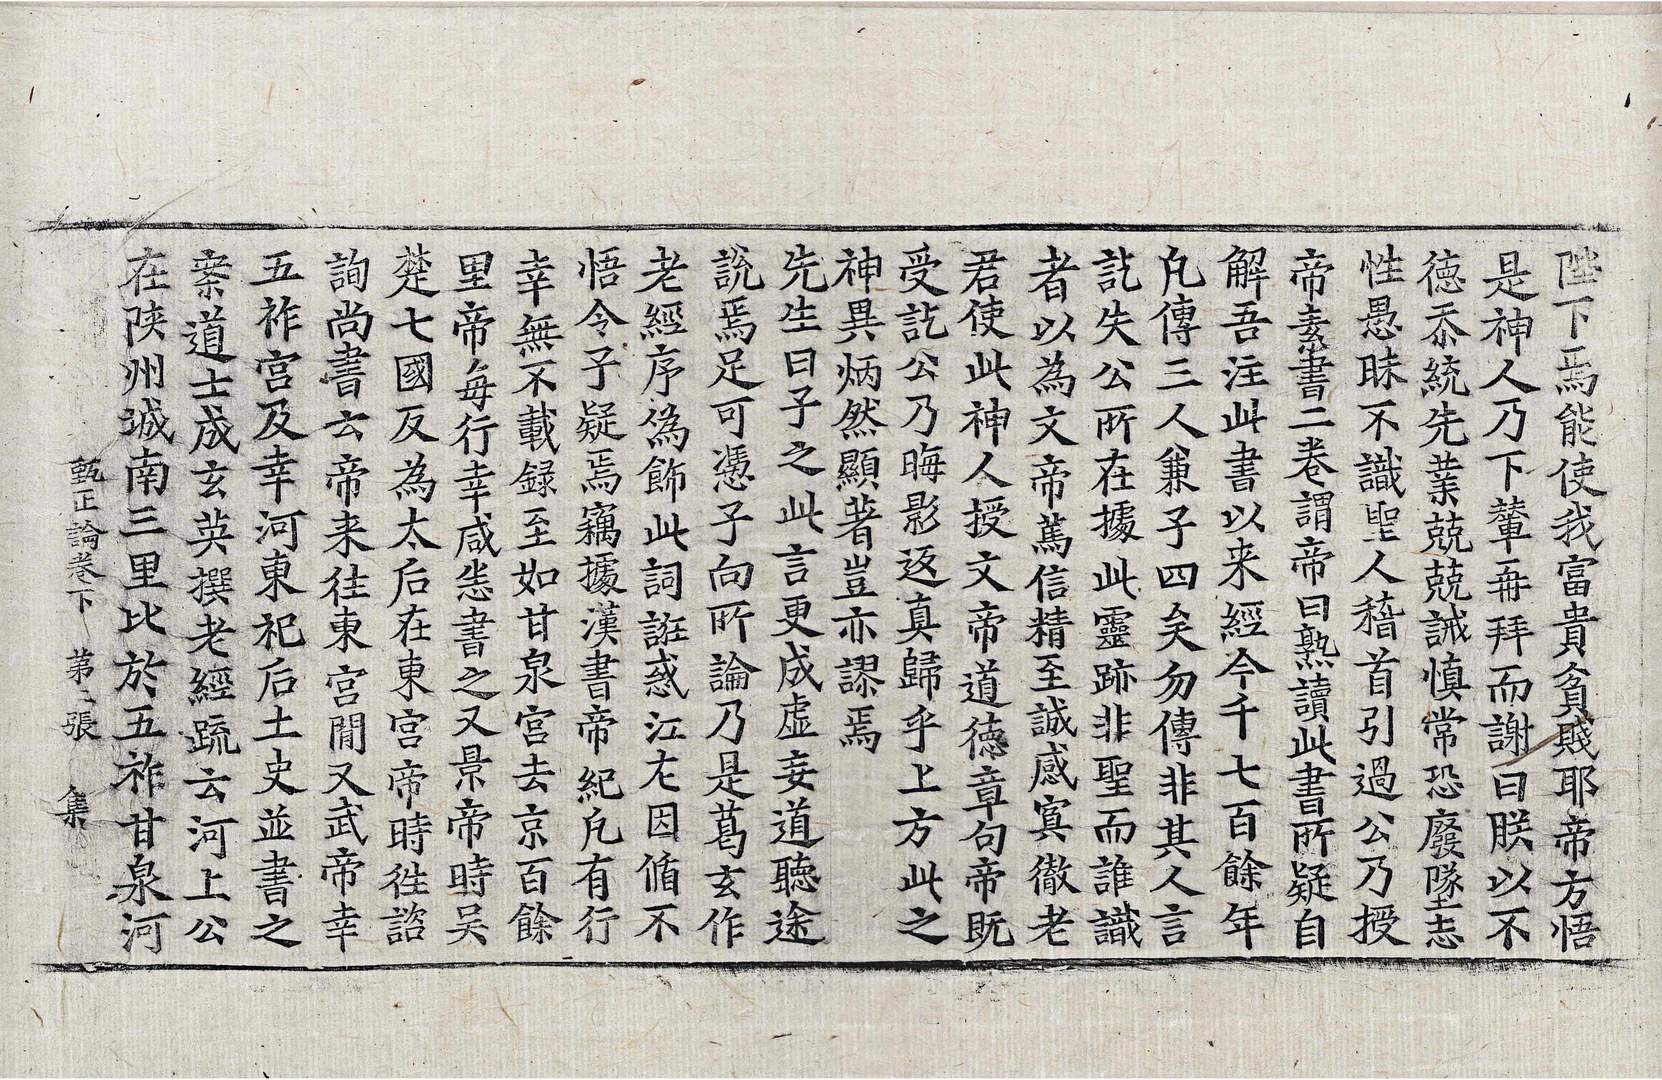 陛下焉能使我富貴貧賤耶帝方悟
是神人乃下輦再拜而謝曰朕以不
德忝統先業兢兢誡慎常恐廢墜志
性愚昧不識聖人稽首引過公乃授
帝素書二卷謂帝曰熟讀此書所疑自
解吾注此書以来經今千七百餘年
凢傳三人兼子四矣勿傳非其人言
訖失公所在據此靈跡非聖而誰識
者以為文帝篤信精至誠感寘徹老
君使此神人授文帝道德章句帝既
受訖公乃晦影返真歸乎上方此之
神異炳然顯著豈亦謬焉
先生曰子之此言更成虛妄道聽途
說焉足可憑子向所論乃是葛玄作
老經序為飾此詞誑惑江左因循不
悟令子疑焉竊據漢書帝紀凢有行
幸無不載録至如甘泉宮去京百餘
里帝每行幸咸悉書之又景帝時吴
楚七國反為太后在東宮帝時徃諮
詢尚書云帝来往東宮閒又武帝幸
五祚宮及幸河東祀后土史並書之
案道士成玄英撰老經疏云河上公
在陝州城南三里比於五祚甘泉河
甄正論卷下 第二張 集